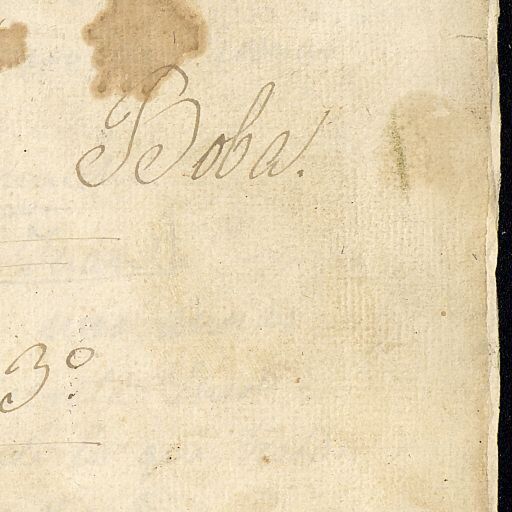 Boba.
3º